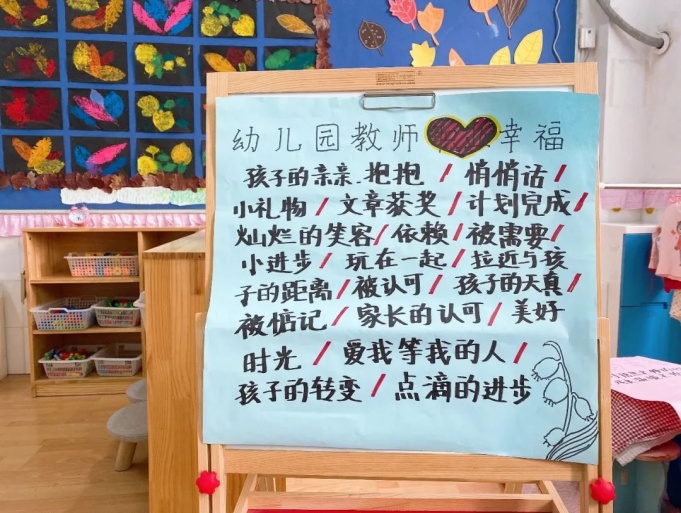 幼儿园教师幸福
孩子的亲亲.抱抱/悄悄话/
小礼物/文章获奖/计划完成/
灿烂的笑容/依赖/被需要/
小进步/玩在一起/拉近与孩
子的距离/被认可/孩子的天真/
被惦记/家长的认可/美好
时光/爱我等我的人/
孩子的转变/点滴的进步